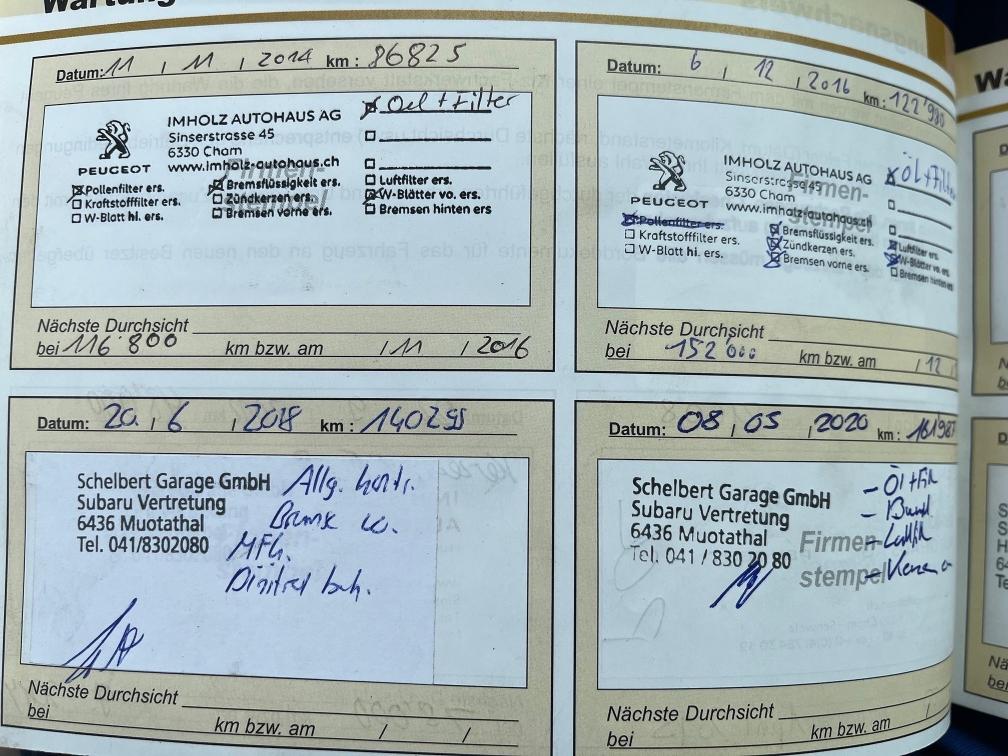 Wartung
Datum: 11 / 11 / 2014 km : 86825
IMHOLZ AUTOHAUS AG
Sinserstrasse 45
6330 Cham
www.imholz-autohaus.ch
PEUGEOT
Oel + Filter
Pollenfilter ers.
Kraftstofffilter ers.
W-Blatt hi. ers.
Bremsflüssigkeit ers.
Zündkerzen ers.
Bremsen vorne ers.
Luftfilter ers.
W-Blätter vo. ers.
Bremsen hinten ers
Firmen-
stempel
Nächste Durchsicht
bei 116'800 km bzw. am / 11 / 2016
Datum: 6 / 12 / 2016 km : 122'980
IMHOLZ AUTOHAUS AG
Sinserstrasse 45
6330 Cham
www.imholz-autohaus.ch
PEUGEOT
Pollenfilter ers.
Kraftstofffilter ers.
W-Blatt hi. ers.
Bremsflüssigkeit ers.
Zündkerzen ers.
Bremsen vorne ers.
Luftfilter ers.
W-Blätter vo. ers.
Bremsen hinten ers
Firmen-
stempel
Nächste Durchsicht
bei 152'000 km bzw. am / 12 /
Datum: 20. / 6 / 2018 km :
Schelbert Garage GmbH
Subaru Vertretung
6436 Muotathal
Tel. 041/8302080
Allg. Kontr.
MFK.
Nächste Durchsicht
bei km bzw. am / /
Datum: 08 / 05 / 2020 km : 161'987
Schelbert Garage GmbH
Subaru Vertretung
6436 Muotathal
Tel. 041 / 830 20 80
Firmen-
stempel
Nächste Durchsicht
bei km bzw. am /